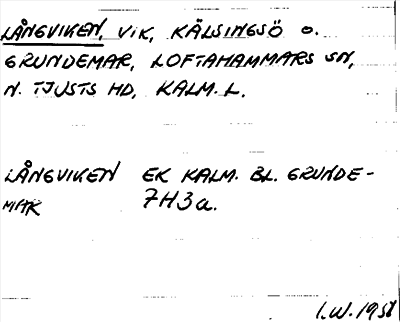 LÅNGVIKEN, VIK, KÄLSINGSÖ O.
GRUNDEMAR, LOFTAHAMMARS SN,
N. TJUSTS HD, KALM. L.
LÅNGVIKEN EK KALM. BL. GRUNDE-
MAR 7H3a.
I.W. 1951